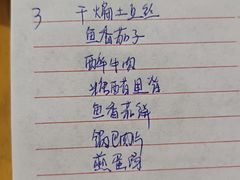 3 干煸土豆丝
鱼香茄子
牛肉
糖醋里脊
鱼香茄饼
锅巴肉片
煎蛋汤